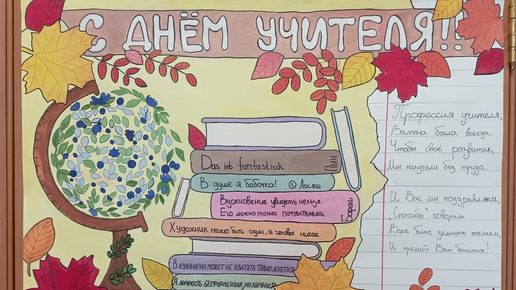 С ДНЁМ УЧИТЕЛЯ!!
Das ist fantastisch
В душе я бабочка! © Лосяш
Вдохновение увидеть нельзя
Его можно только почувствовать
Бараш
Художник может быть один, а человек никак
В кулинарии может не хватать только аппетита
Я личность бесформенная, но личность
Профессия учителя,
Важна была всегда.
Чтобы своё развитие,
Мы получали без труда.
И Вас мы поздравляем,
„Спасибо" говорим
Всех благ земных желаем,
И крепкий Вам